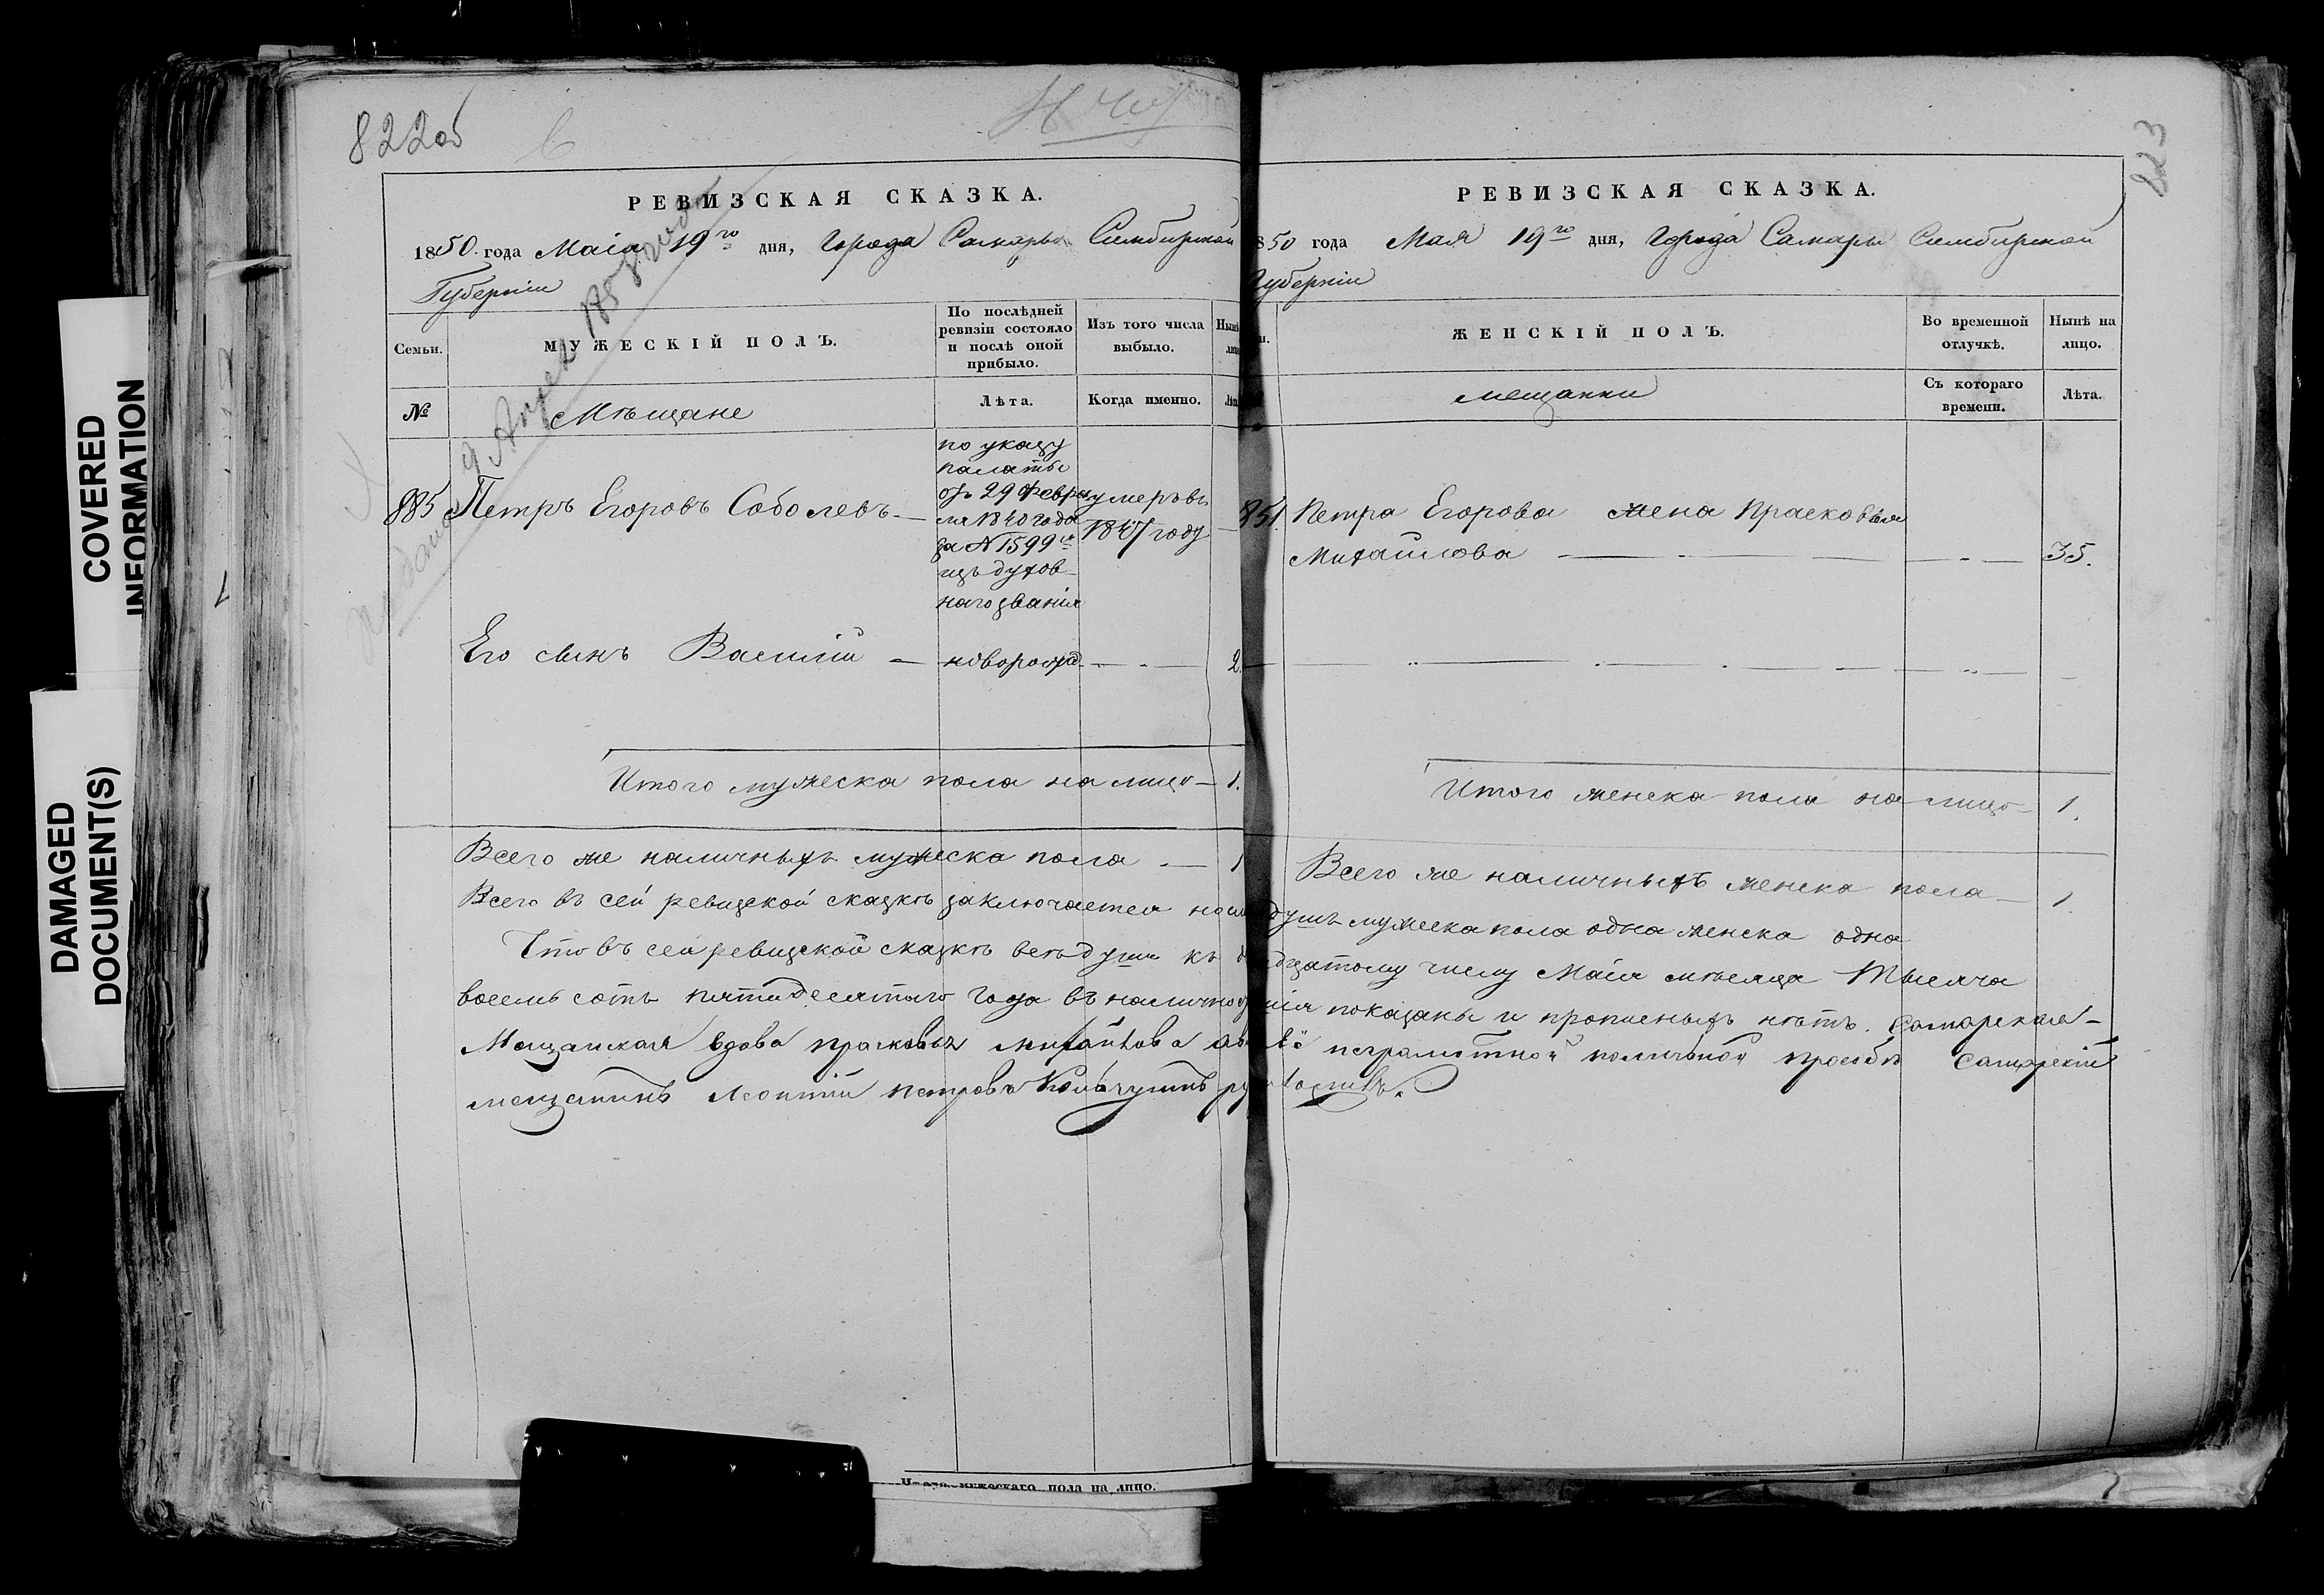 COVERED
INFORMATION
DAMAGED
DOCUMENT(S)
822об
РЕВИЗСКАЯ СКАЗКА.
1850 года Маія 19го дня, Города Самары Симбирской
Губерніи
Семьи.
МУЖЕСКІЙ ПОЛЪ.
По послѣдней
ревизіи состояло
и послѣ оной
прибыло.
Изъ того числа
выбыло.
№
Мѣщане
Лѣта.
Когда именно.
885
Петръ Егоровъ Соболевъ —
по указу
палаты
отъ 29 Февра
ля 1840 года
за № 1599
изъ духов
наго званія
умеръ въ
1847 году
Его сынъ Василій — новорожд — 2.
Итого мужеска пола на лицо — 1.
Всего же наличныхъ мужеска пола — 1
Всего въ сей ревизской сказкѣ заключается
Что въ сей ревизской сказкѣ всѣ души къ
восемь сотъ пятидесятого года въ
Мещанская вдова Прасковья Михайлова
мещанинъ Леонтій Петровъ
Итого мужескаго пола на лицо.
823
РЕВИЗСКАЯ СКАЗКА.
850 года Мая 19го дня, Города Самары Симбирской
Губерніи
ЖЕНСКІЙ ПОЛЪ.
Во временной
отлучкѣ.
Нынѣ на
лицо.
мещанки
Съ котораго
времени.
Лѣта.
851
Петра Егорова жена Прасковья
Михайлова — 35.
Итого женска пола на лицо 1.
Всего же наличныхъ женска пола — 1
душъ мужеска пола одна женска одна
числу Маія мѣсяца Тысяча
показаны и прописныхъ нѣтъ. Самарская
неграмотной по личной просьбѣ Самарскій